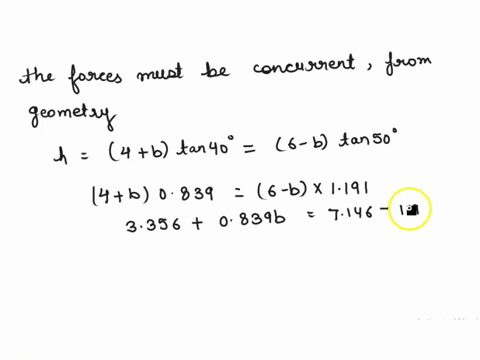 the forces must be concurrent, from
geometry
h = (4+b) tan40° = (6-b) tan50°
(4+b) 0.839 = (6-b) × 1.191
3.356 + 0.839b = 7.146 - 1